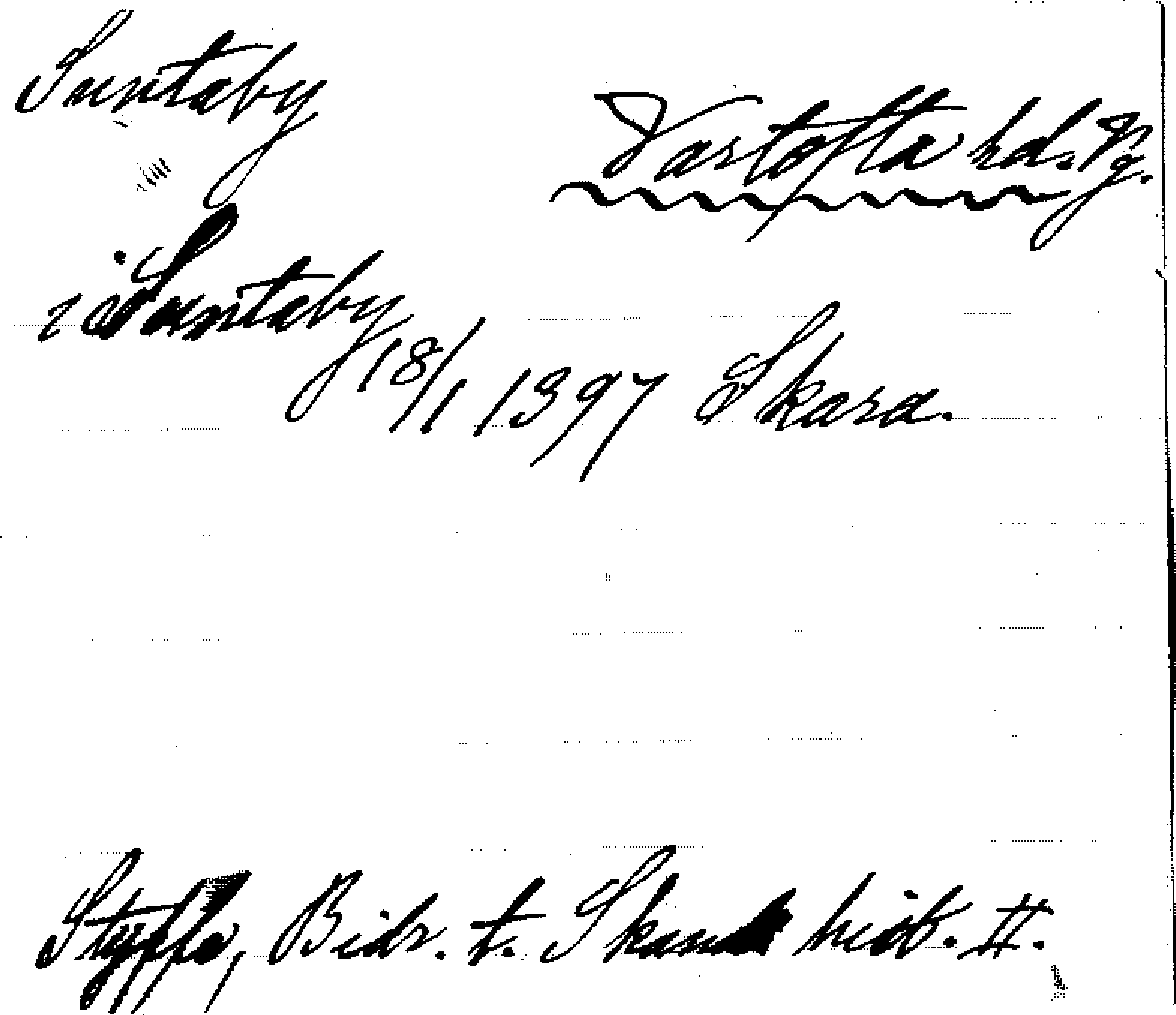 Suntaby
Vartofta hd. Vg.
i Suntaby
18/1 1397 Skara.
Styffe, Bidr. t. Skand. hist. II.